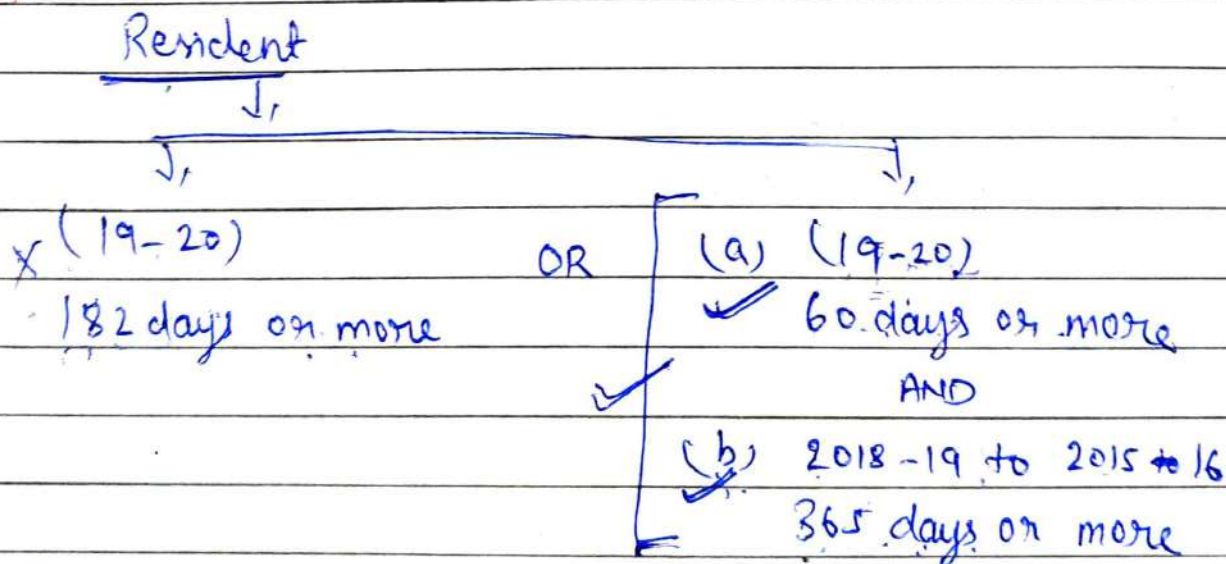 Resident
(19-20)
182 days or more
OR
(a) (19-20)
60 days or more
AND
(b) 2018-19 to 2015 to 16
365 days or more